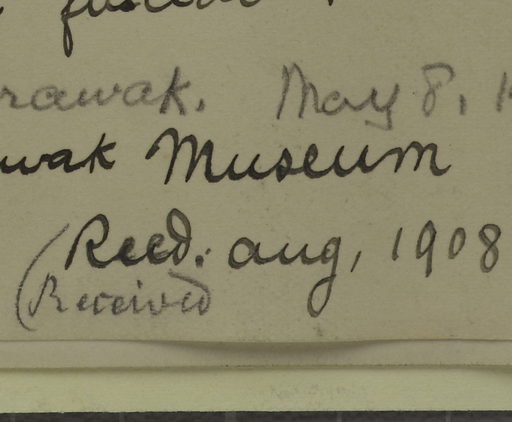 rawak. May 8, 1
wak Museum
Recd. Aug, 1908
(Received